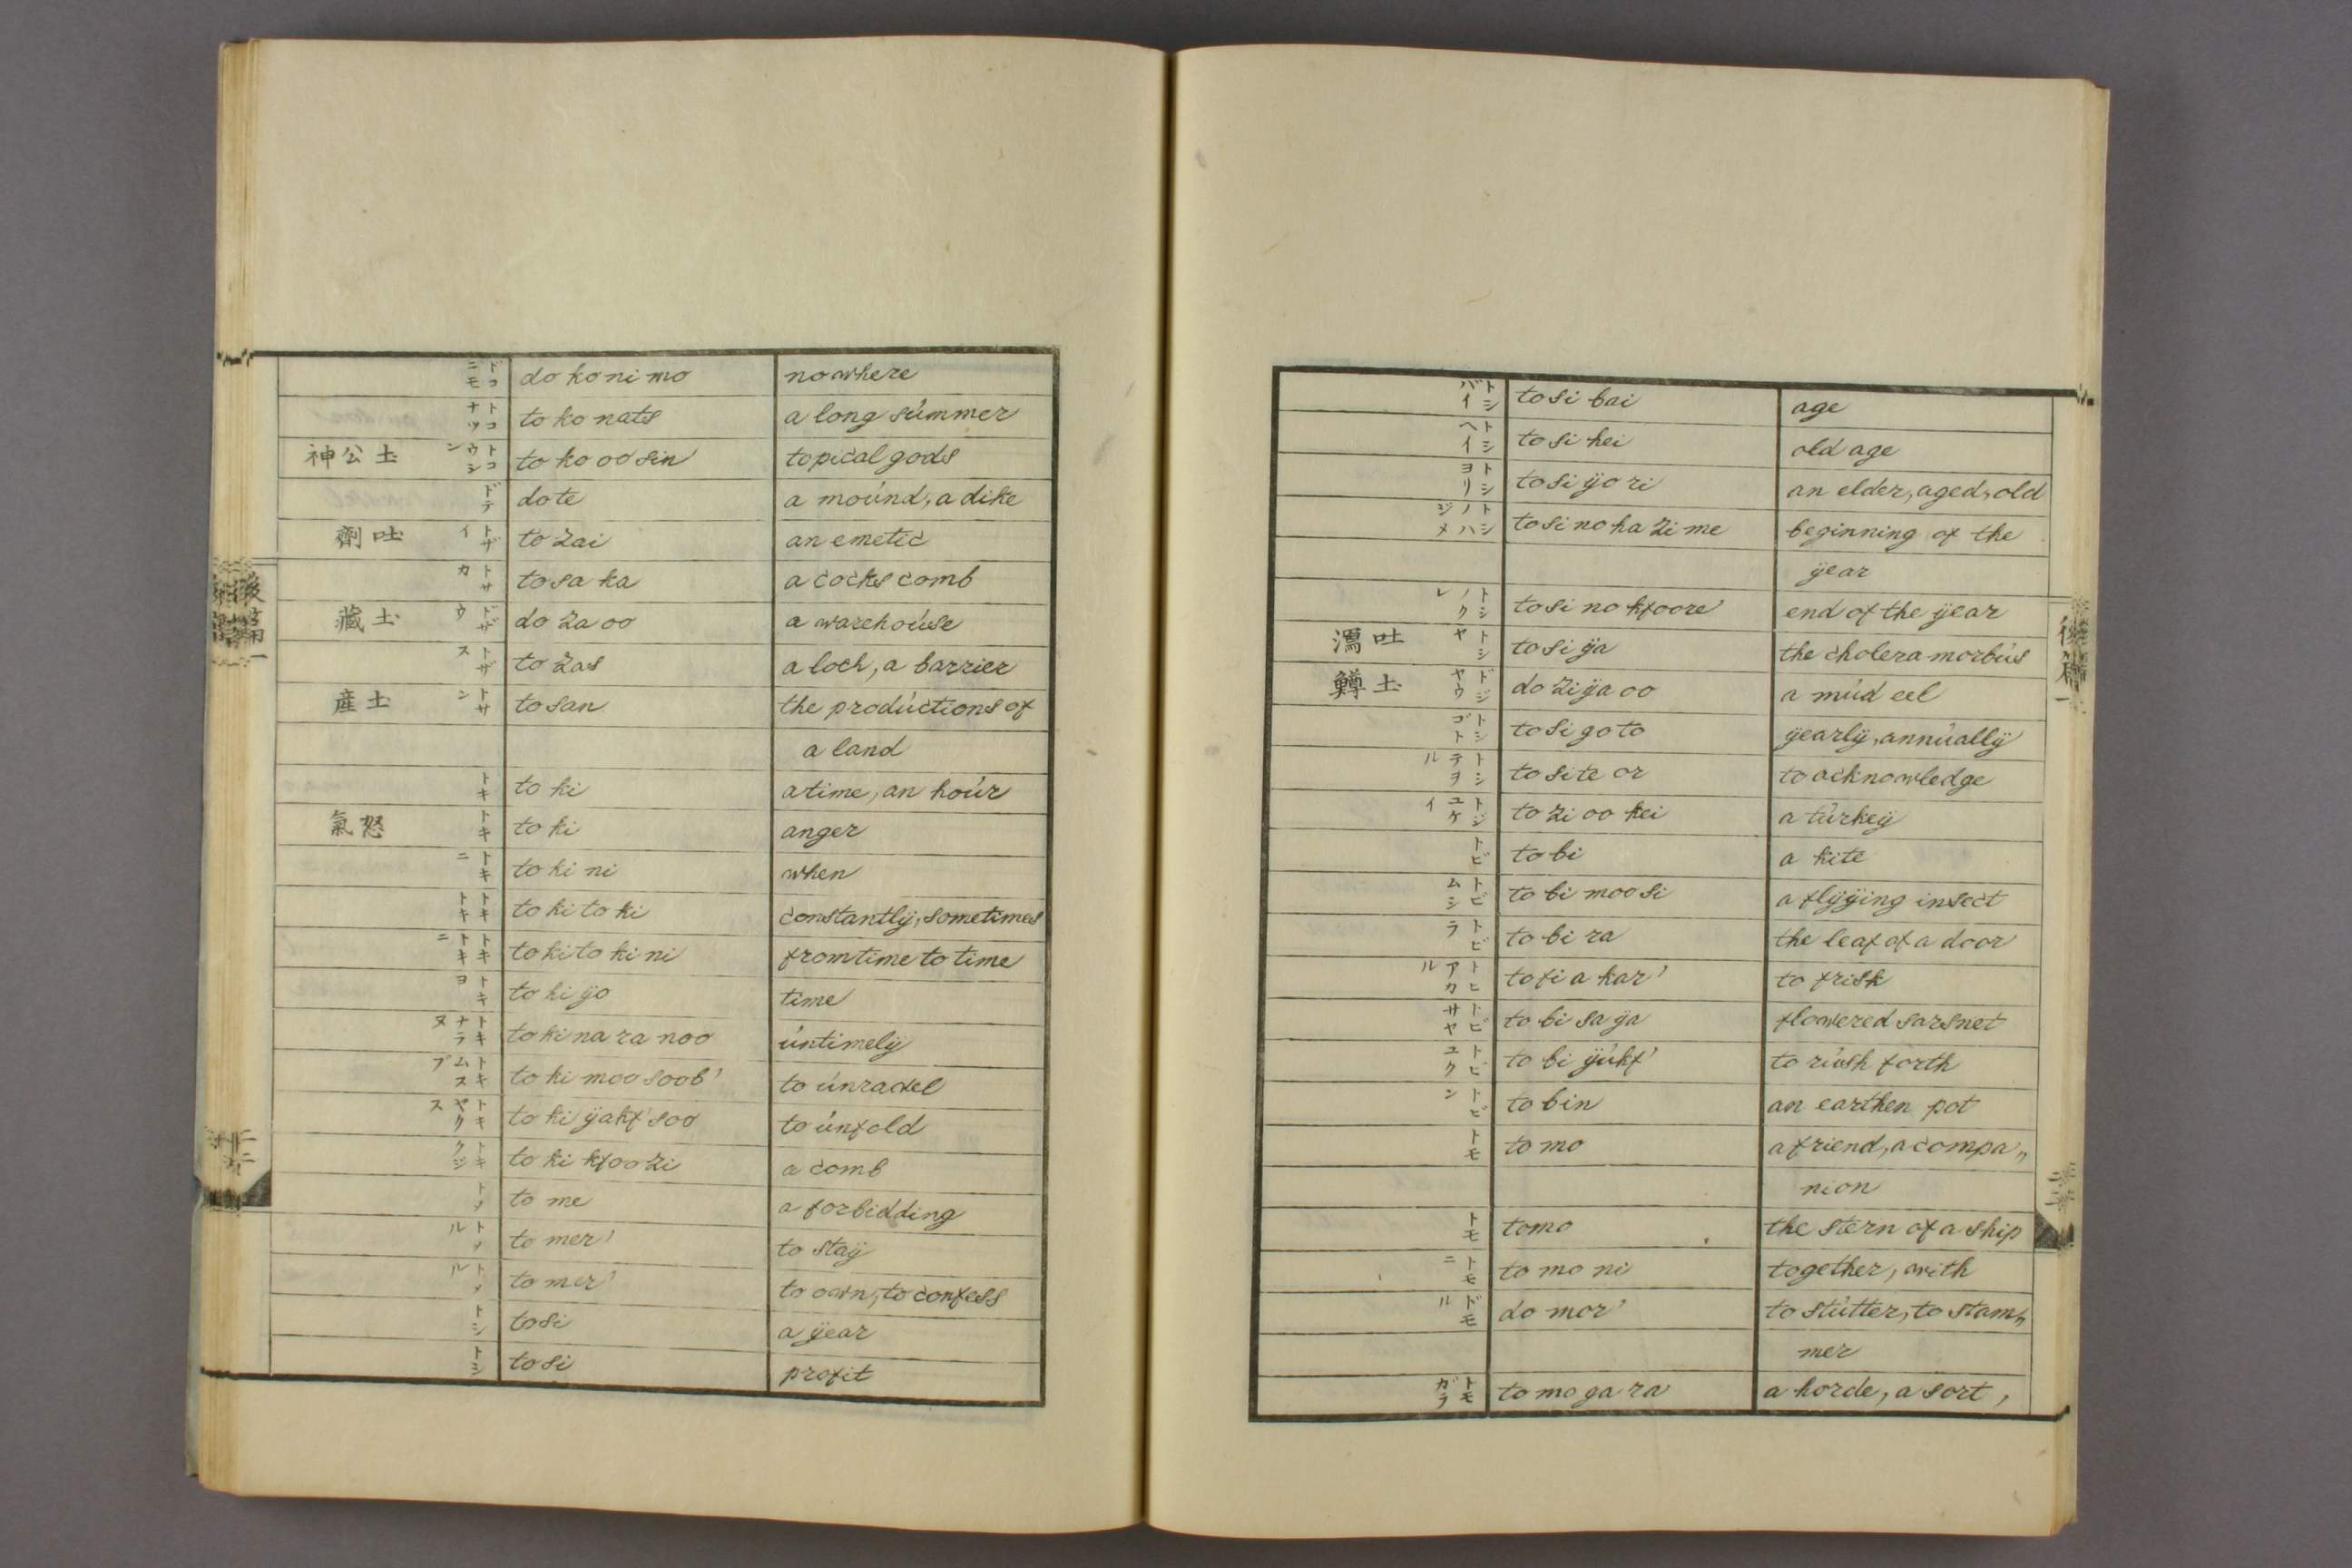 ドコニモ do ko ni mo nowhere
トコナツ to ko nats a long súmmer
土公神 トコウシン to ko oo sin' topical gods
ドテ do te a moúnd, a dike
吐劑 トザイ to zai an emetic
トサカ to sa ka a cocks comb
土藏 ドザウ do za oo a warehoúse
トザス to zas a loch, a barrier
土産 トサン to san the prodúctions of
a land
トキ to ki a time, an hoúr
怒氣 トキ to ki anger
トキニ to ki ni when
トキトキ to ki to ki constantlÿ, sometimes
トキトキニ to ki to ki ni from time to time
トキヨ to ki ÿo time
トキナラヌ to ki na ra noo úntimelÿ
トキムスブ to ki moo soob' to únravel
トキヤクス to ki ÿakf' soo to únfold
トキクジ to ki kfoo zi a comb
トメ to me a forbidding
トメル to mer' to staÿ
トメル to mer' to own, to confess
トシ to si a ÿear
トシ to si profit
トシバイ to si bai age
トシヘイ to si hei old age
トシヨリ to si ÿo ri an elder, aged, old
トシノハジメ to si no ha zi me beginning of the
ÿear
トシノクレ to si no kfoore' end of the ÿear
吐瀉 トシヤ to si ÿa the cholera morbús
土鱒 ドジヤウ do zi ÿa oo a múd eel
トシゴト to si go to ÿearlÿ, annúallÿ
トシテヲル to si te or to acknowledge
トジユケイ to zi oo kei a túrkeÿ
トビ to bi a kite
トビムシ to bi moo si a flÿÿing insect
トビラ to bi ra the leaf of a door
トヒアカル to fi a kar' to frisk
トビサヤ to bi sa ÿa flowered sarsnet
トビユク to bi ÿúkf' to rúsh forth
トビン to bin an earthen pot
トモ to mo a friend, a compa„
nion
トモ tomo the stern of a ship
トモニ to mo ni together, with
ドモル do mor' to stútter, to stam„
mer
トモガラ to mo ga ra a horde, a sort,
後篇一